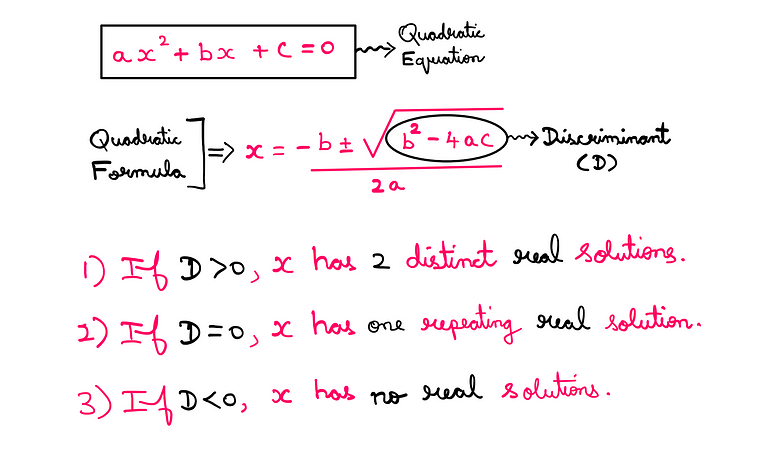 ax² + bx + c = 0 → Quadratic Equation
Quadratic Formula ] ⇒ x = -b ± √(b² - 4ac) / 2a → Discriminant (D)
1) If D > 0, x has 2 distinct real solutions.
2) If D = 0, x has one repeating real solution.
3) If D < 0, x has no real solutions.